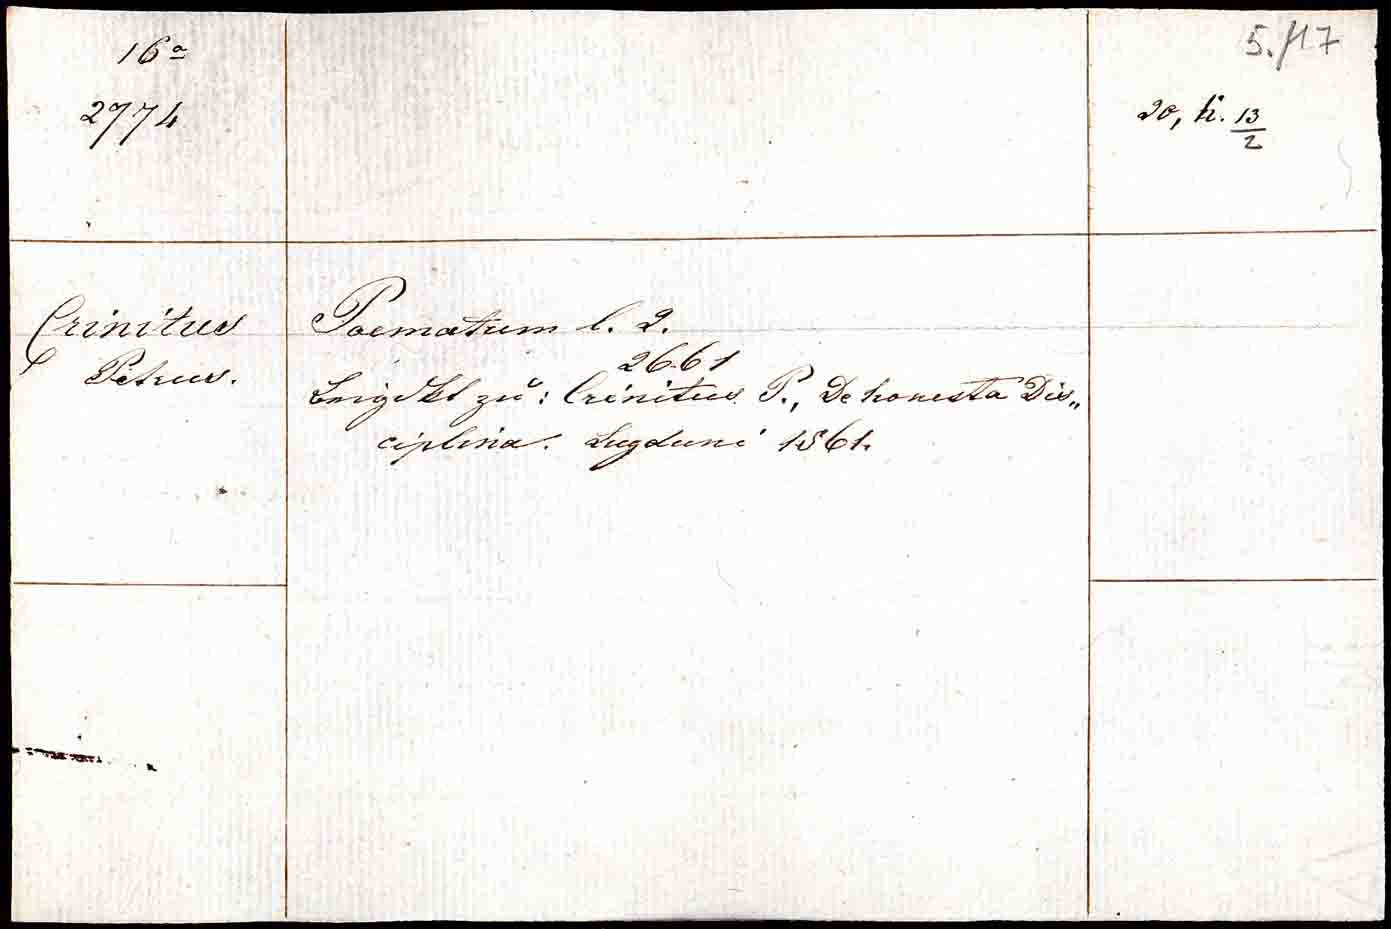 16a
2774
5.f17
20, k. 13/2
Crinitus
Petrus.
Poematum l. 2.
2661
beigebd zu: Crinitus P., De honesta Dis„
ciplina. Lugduni 1561.